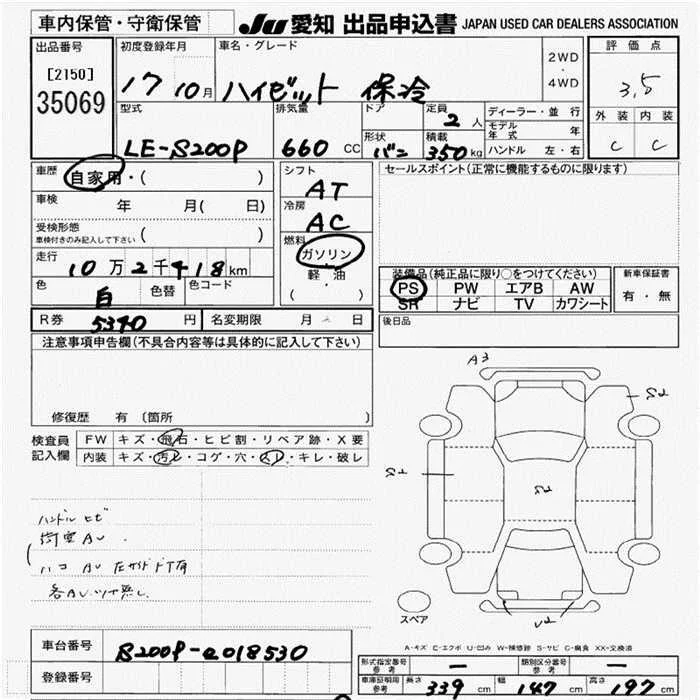 車内保管・守衛保管 JU 愛知 出品申込書 JAPAN USED CAR DEALERS ASSOCIATION
出品番号 初度登録年月 車名・グレード 評価点
[2150] 17 10月 ハイゼット 保冷 2WD・4WD 3.5
35069
型式 排気量 ドア 定員 2人 ディーラー・並行 外装 内装
モデル年式 年
LE-S200P 660 CC 形状 バン 積載 350kg ハンドル 左・右 C C
車歴 自家用・( ) シフト AT セールスポイント(正常に機能するものに限ります)
車検 年 月( 日) 冷房 AC
受検形態
車検付きのみ記入して下さい ( ) 燃料 ガソリン
軽油
( )
走行 10万2千418km 装備品(純正品に限り○をつけてください) 新車保証書
PS PW エアB AW 有・無
色 白 色替 色コード SR ナビ TV カワシート
R券 5340円 名変期限 月 日 後日品
注意事項申告欄(不具合内容等は具体的に記入して下さい)
修復歴 有 〔箇所 〕
検査員記入欄 FW キズ・飛石・ヒビ割・リペア跡・X要
内装 キズ・汚レ・コゲ・穴・スレ・キレ・破レ
A3
S2
S2
S2
U2
ハンドル ヒビ
スペア
A-キズ E-エクボ U-凹み W-補修跡 S-サビ C-腐食 XX-交換済
車台番号 S200P-2018530
登録番号
形式指定番号 参考 ー 類別区分番号 参考 ー
車庫証明用 参考 長さ 339cm 幅 147cm 高さ 197cm